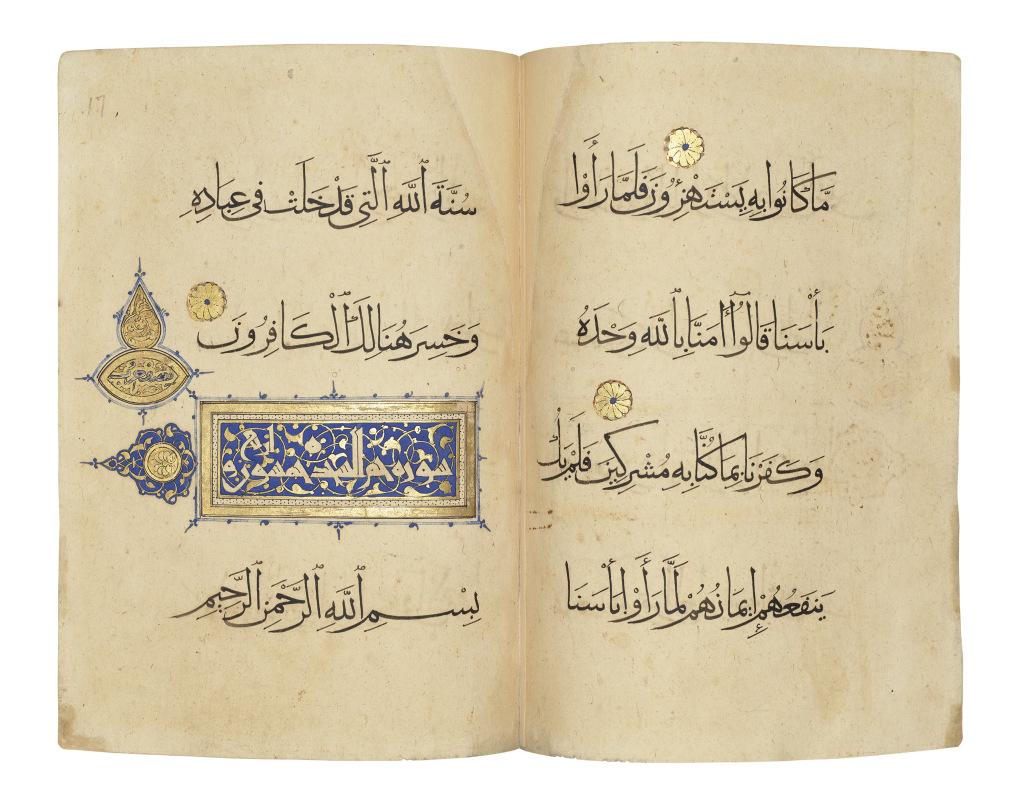 مَّا كَانُوا بِهِ يَسْتَهْزِءُونَ فَلَمَّا رَأَوْا
بَأْسَنَا قَالُوا آمَنَّا بِاللَّهِ وَحْدَهُ
وَكَفَرْنَا بِمَا كُنَّا بِهِ مُشْرِكِينَ فَلَمْ يَكُ
يَنفَعُهُمْ إِيمَانُهُمْ لَمَّا رَأَوْا بَأْسَنَا
17
سُنَّتَ اللَّهِ الَّتِي قَدْ خَلَتْ فِي عِبَادِهِ
وَخَسِرَ هُنَالِكَ الْكَافِرُونَ
سورة حم السجدة
بِسْمِ اللَّهِ الرَّحْمَنِ الرَّحِيمِ